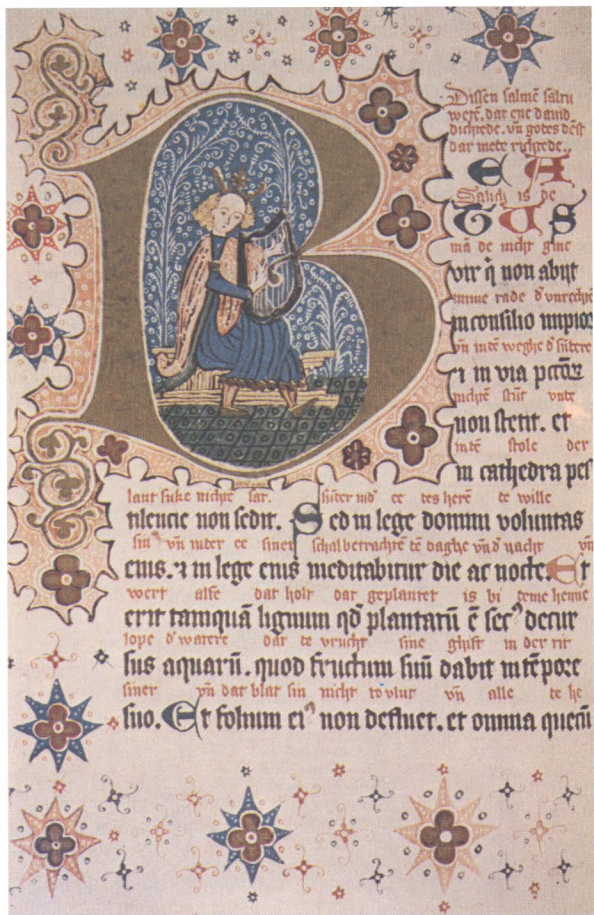 Dissen salmē salm
were. dar ene dauid
dichtede. vn̄ gotes dēst
dar mete richtede..
B EA
Salich is de
TUS
mā de nicht ginc
vir q̄ non abijt
in consilio impior
vn̄ in dē weghe d' sūdere
⁊ in via pctōꝝ
non stetit. et
in dē stole der
in cathedra pes
suke nicht sat. in
tilencie non sedit. Sed in lege domini voluntas
sin vn̄ in der ee siner schal betrachtē dē daghe vn̄d nacht vn̄
eius. ⁊ in lege eius meditabitur die ac nocte. Et
wert alse dat holt dat geplantet is bi deme
erit tamquā lignum qd' plantatū ē sec⁹ decur
lope d' watere dar de vrucht sine ghift in der tit
sus aquarū. quod fructum suū dabit in tēpore
siner vn̄ dat blat sin nicht to vlut vn̄ alle de
suo. Et folium ei⁹ non defluet. et omnia quecū